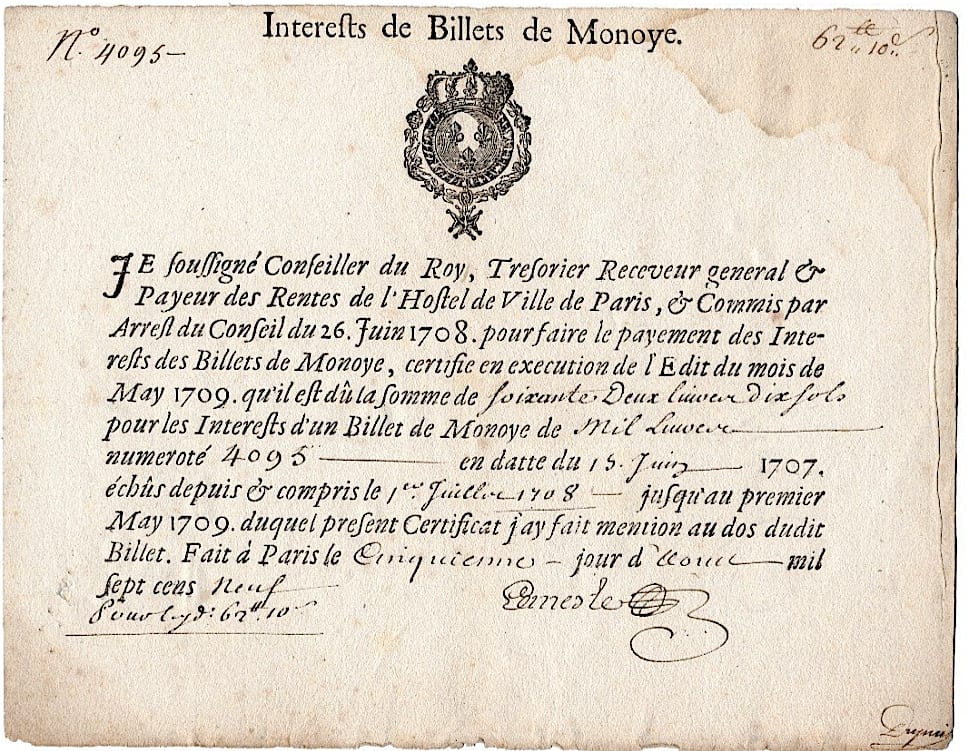 Interests de Billets de Monoye.
N.° 4095
62tt 10s
JE soussigné Conseiller du Roy, Tresorier Receveur general &
Payeur des Rentes de l'Hostel de Ville de Paris, & Commis par
Arrest du Conseil du 26. Juin 1708. pour faire le payement des Inte-
rests des Billets de Monoye, certifie en execution de l'Edit du mois de
May 1709. qu'il est dû la somme de soixante Deux livres dix sols
pour les Interests d'un Billet de Monoye de Mil Livres
numeroté 4095 en datte du 15. Juin 1707.
échûs depuis & compris le 1er Juillet 1708 jusqu'au premier
May 1709. duquel present Certificat j'ay fait mention au dos dudit
Billet. Fait à Paris le Cinquieme jour d'Aoust mil
sept cens Neuf
Pour lesd: 62tt 10s